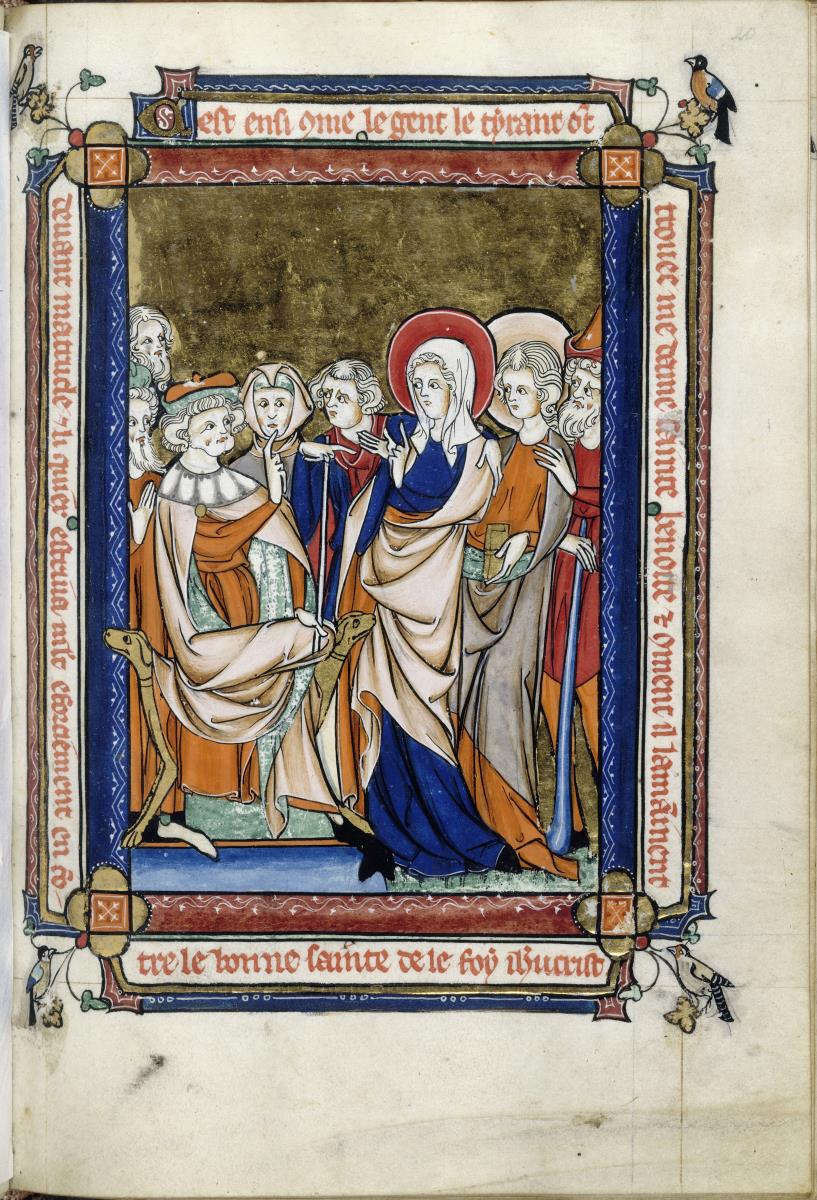 Cest ensi ꝯme le gent le tyrant ōt
trouee me dame sainte benoite ⁊ ꝯment il lamainēt
deuant matrude ⁊ li quiuer estriua mlt eforciement en cō
tre le bonne sainte de le foy ihucrist
20